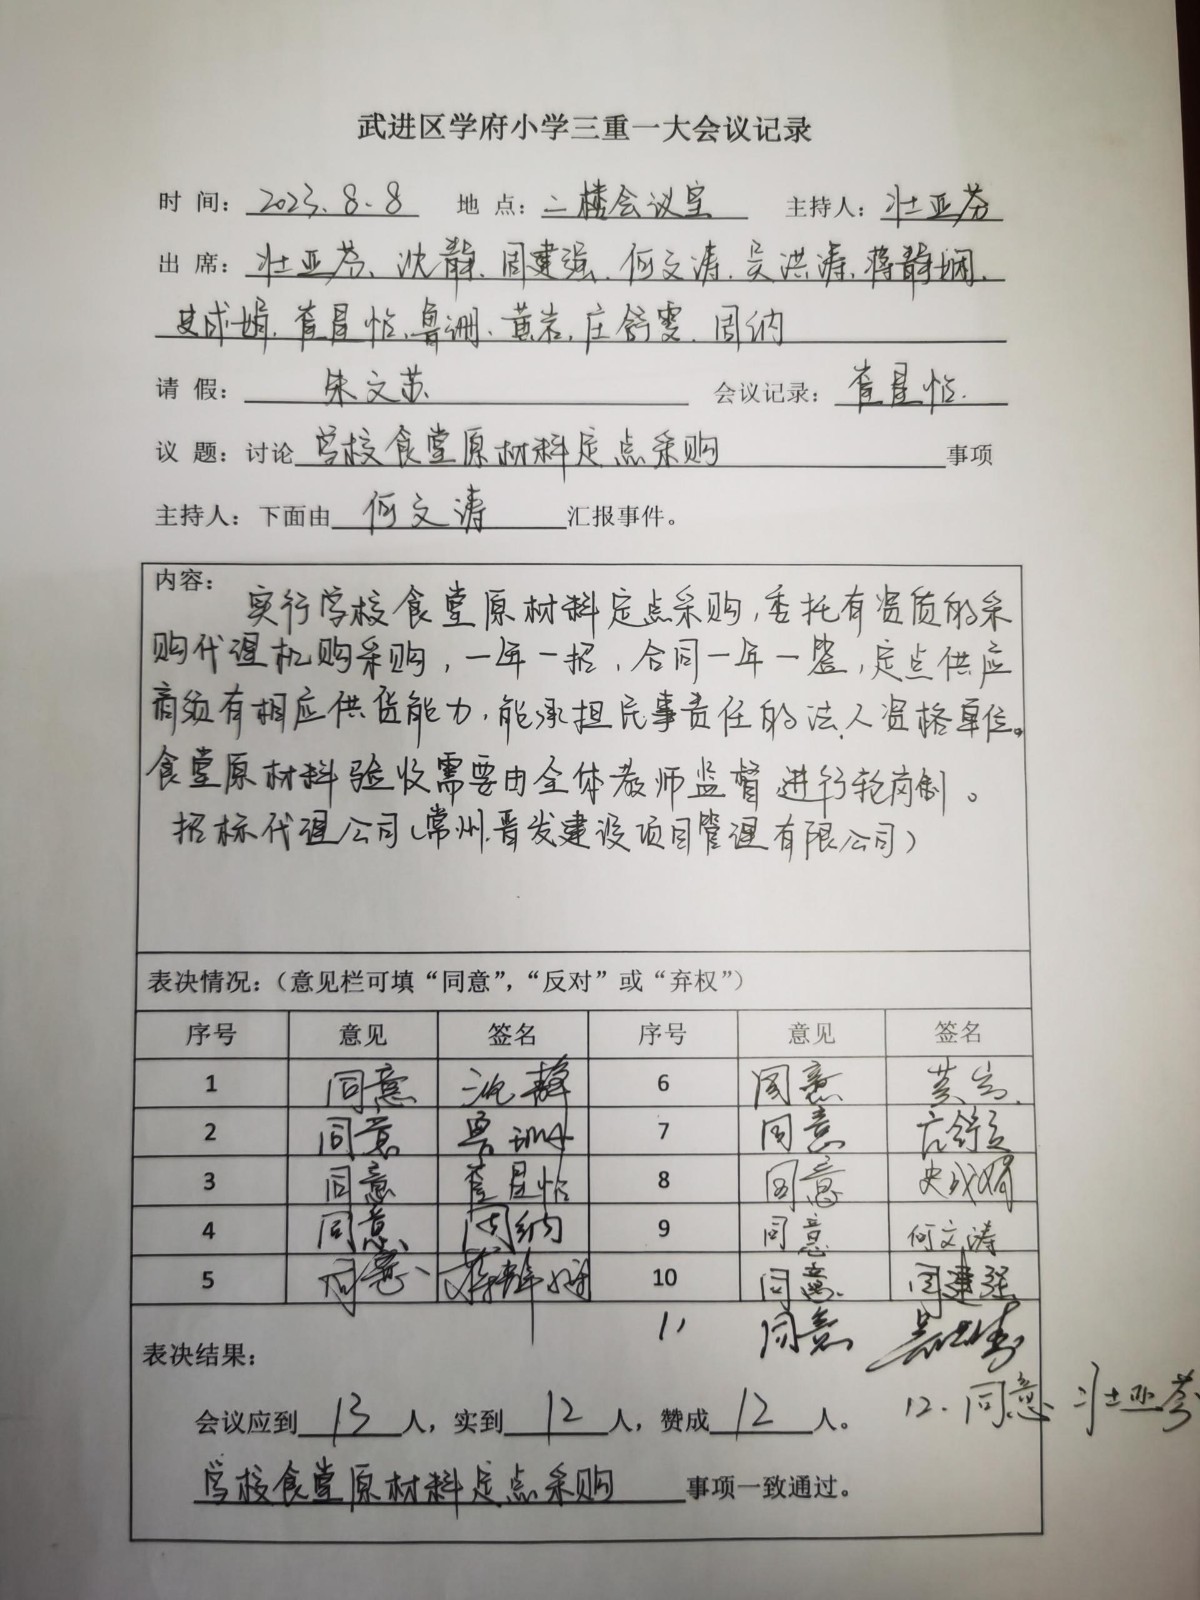 武进区学府小学三重一大会议记录
时 间：2023.8.8 地 点：二楼会议室 主持人：壮亚芬
出 席：壮亚芬、沈静、周建强、何文涛、吴洪涛、蒋静娴、
史成娟、查星怡、鲁珊、黄岩、庄舒雯、周纳
请 假：朱文苏 会议记录：查星怡
议 题：讨论学校食堂原材料定点采购事项
主持人：下面由何文涛汇报事件。
内容：
实行学校食堂原材料定点采购，委托有资质的采
购代理机购采购，一年一招，合同一年一签，定点供应
商须有相应供货能力，能承担民事责任的法人资格单位。
食堂原材料验收需要由全体教师监督进行轮岗制。
招标代理公司（常州晋发建设项目管理有限公司）
表决情况：（意见栏可填“同意”，“反对”或“弃权”）
序号 意见 签名 序号 意见 签名
1 同意 沈静 6 同意 黄岩
2 同意 鲁珊 7 同意 庄舒雯
3 同意 查星怡 8 同意 史成娟
4 同意 周纳 9 同意 何文涛
5 同意 蒋静娴 10 同意 周建强
11 同意 吴洪涛
表决结果：
12. 同意 壮亚芬
会议应到13人，实到12人，赞成12人。
学校食堂原材料定点采购事项一致通过。